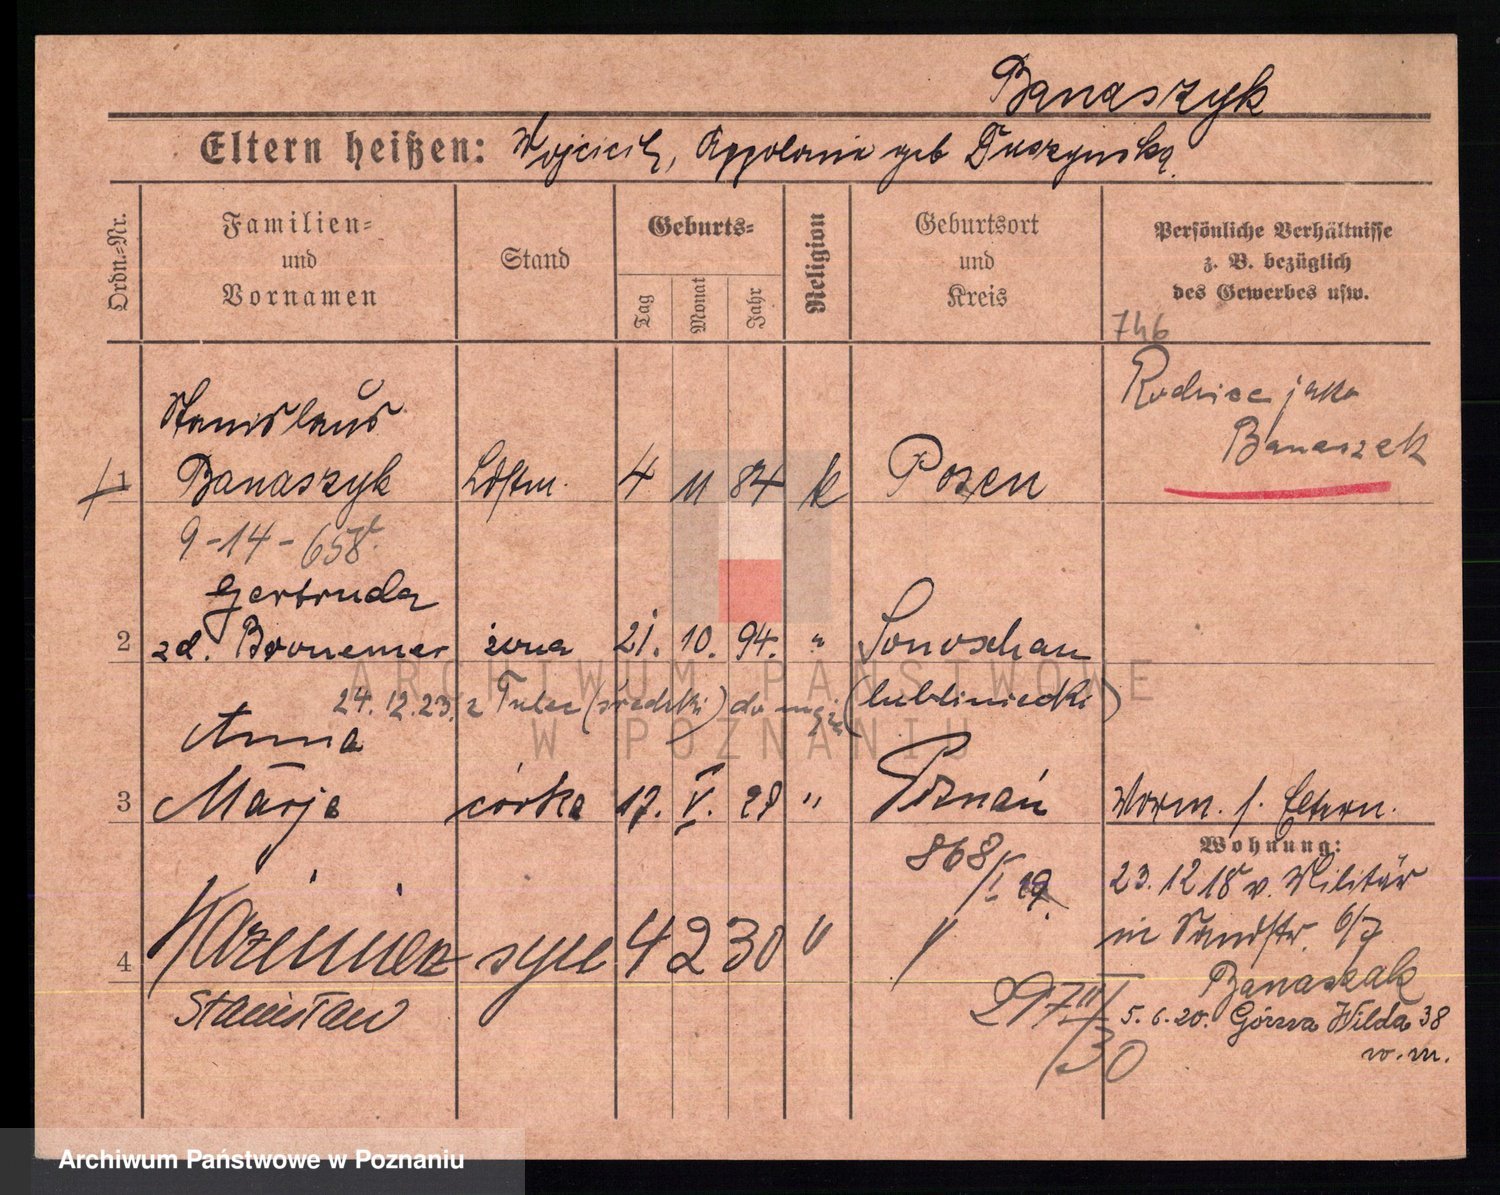 Banaszyk
Eltern heißen: Wojciech, Appolonia geb Duszynska
Ordn.-Nr.
Familien- und Vornamen
Stand
Geburts-
Tag
Monat
Jahr
Religion
Geburtsort und Kreis
Persönliche Verhältnisse z. B. bezüglich des Gewerbes usw.
746
Rodzice jako
Banaszek
Stanislaus
1 Banaszyk Ldstm. 4 11 84 k Posen
9-14-658
Gertruda
2 zd. Bronemer żona 21. 10. 94. " Sonoschau
24.12.23. z Tulec (średzki) do męża (lubliniecki)
Anna
3 Marja córka 17. V. 28 " Poznań
Vorm. s. Eltern.
868/I 29.
Wohnung:
23.12 18 v. Militär
in Sandstr. 6/7
4 Kazimierz syn 4 2 30 " "
Stanisław
Banaszak
297 II/30
5.6.20. Górna Wilda 38
w.m.
ARCHIWUM PAŃSTWOWE
W POZNANIU
Archiwum Państwowe w Poznaniu